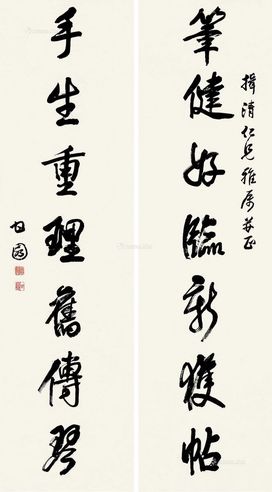 揖清仁兄雅属并正
筆健好臨新獲帖
手生重理舊傳琴